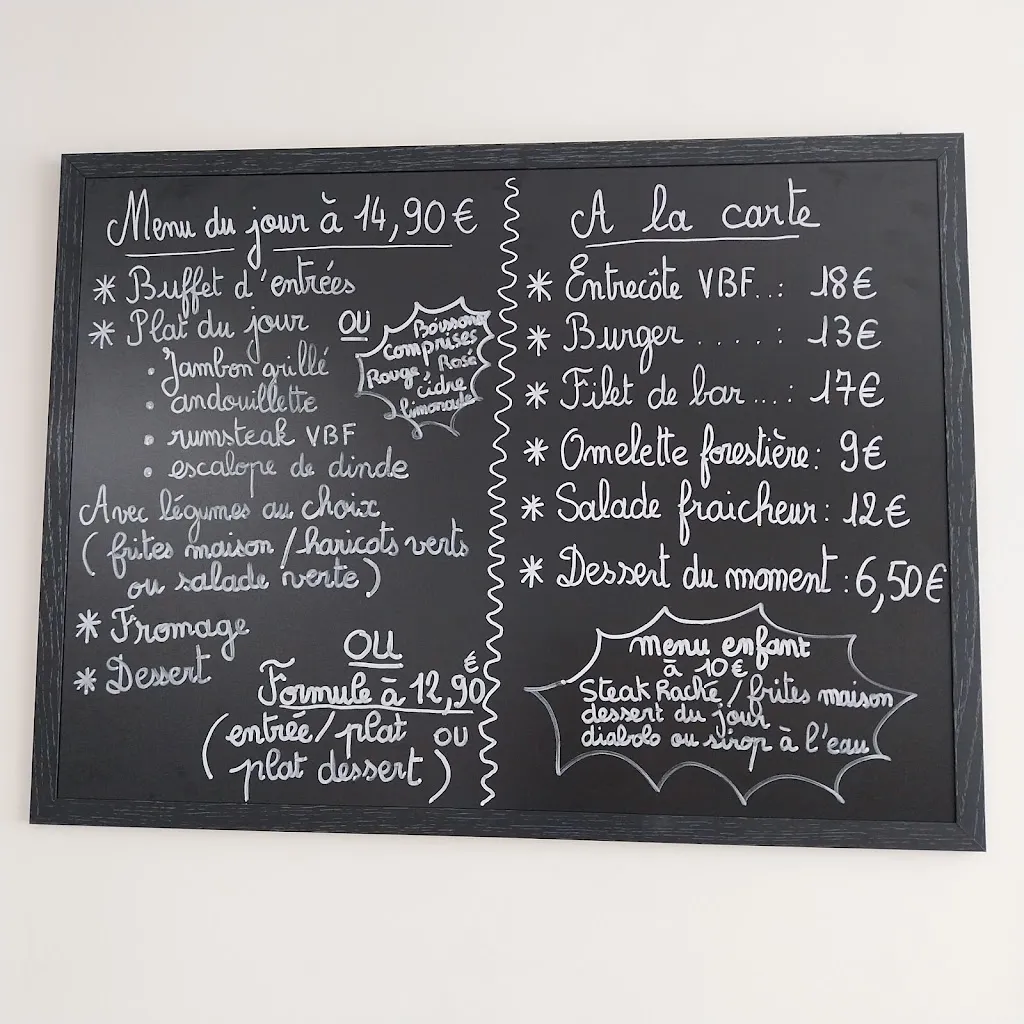 Menu du jour à 14,90€
* Buffet d'entrées
* Plat du jour OU
• Jambon grillé
• andouillette
• rumsteak VBF
• escalope de dinde
Boissons
comprises
Rouge, Rosé
cidre
limonade
Avec légumes au choix
(frites maison / haricots verts
ou salade verte)
* Fromage
* Dessert
OU
Formule à 12,90€
(entrée/plat ou
plat dessert)
A la carte
* Entrecôte VBF..: 18€
* Burger .....: 13€
* Filet de bar ...: 17€
* Omelette forestière: 9€
* Salade fraicheur: 12€
* Dessert du moment: 6,50€
menu enfant
à 10€
Steak haché / frites maison
dessert du jour
diabolo ou sirop à l'eau